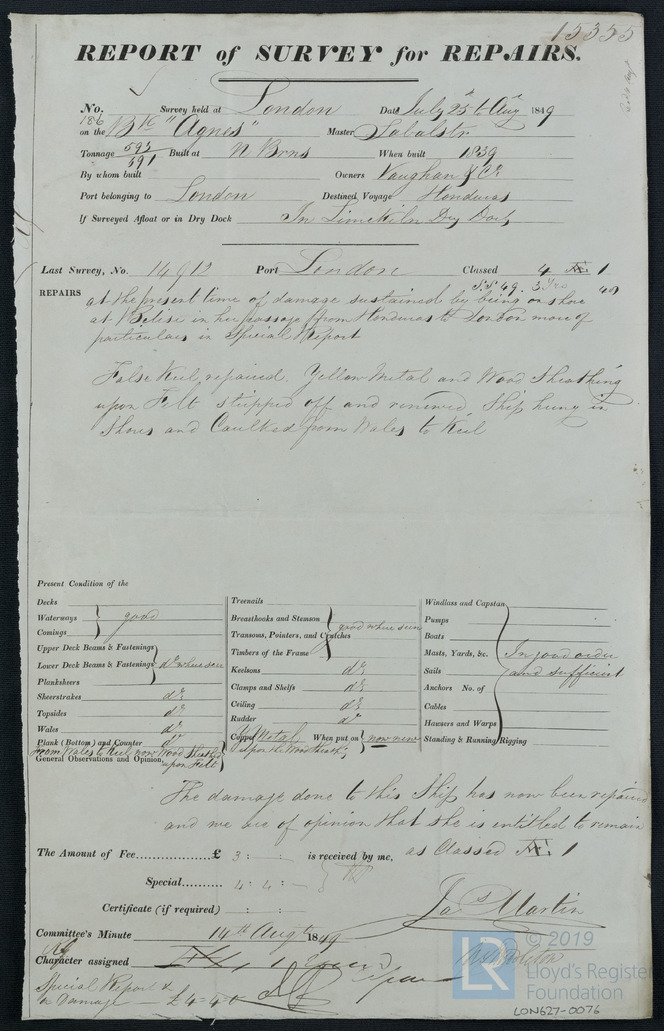 15355
REPORT of SURVEY for REPAIRS.
No. 186 Survey held at London Date July 25 to Aug 1849
on the Bk "Agnes" Master
Tonnage 593 / 391 Built at N Brns When built 1839
By whom built Owners Vaughan & Co
Port belonging to London Destined Voyage Honduras
If Surveyed Afloat or in Dry Dock In Limekiln Dry Dock
Last Survey, No. 14912 Port London Classed 4 Æ 1
S.S 49. 3 Yrs 49
REPAIRS at the present time of damage sustained by being on shore
at Belise in her passage from Honduras to London more of
particulars in Special Report
False Keel repaired. Yellow Metal and Wood Sheathing
upon Felt stripped off and renewed, Ship hung in
Shores and Caulked from Wales to Keel
Present Condition of the
Decks
Waterways } good
Comings
Upper Deck Beams & Fastenings
Lower Deck Beams & Fastenings } do where seen
Planksheers
Sheerstrakes do
Topsides do
Wales do
Plank (Bottom) and Counter do
From Wales to Keel now Wood Sheathed
upon Felt
General Observations and Opinion,
Treenails
Breasthooks and Stemson } good where seen
Transoms, Pointers, and Crutches
Timbers of the Frame
Keelsons do
Clamps and Shelfs do
Ceiling do
Rudder do
Copper Y Metal When put on now new
upon the Wood Sheathg
Windlass and Capstan
Pumps
Boats
Masts, Yards, &c. In good order
Sails and sufficient
Anchors No. of
Cables
Hawsers and Warps
Standing & Running Rigging
The damage done to this Ship has now been repaired
and we are of opinion that she is entitled to remain
as Classed Æ 1
The Amount of Fee.............. £ 3 : : is received by me,
Special........ 4 : 4 : —
Certificate (if required) : :
Jas Martin
Committee's Minute 14th Augt 1849
Character assigned Æ 1
Special Report &
on Damage £4=4=0
© 2019
LR
Lloyd's Register
Foundation
LON627-0076